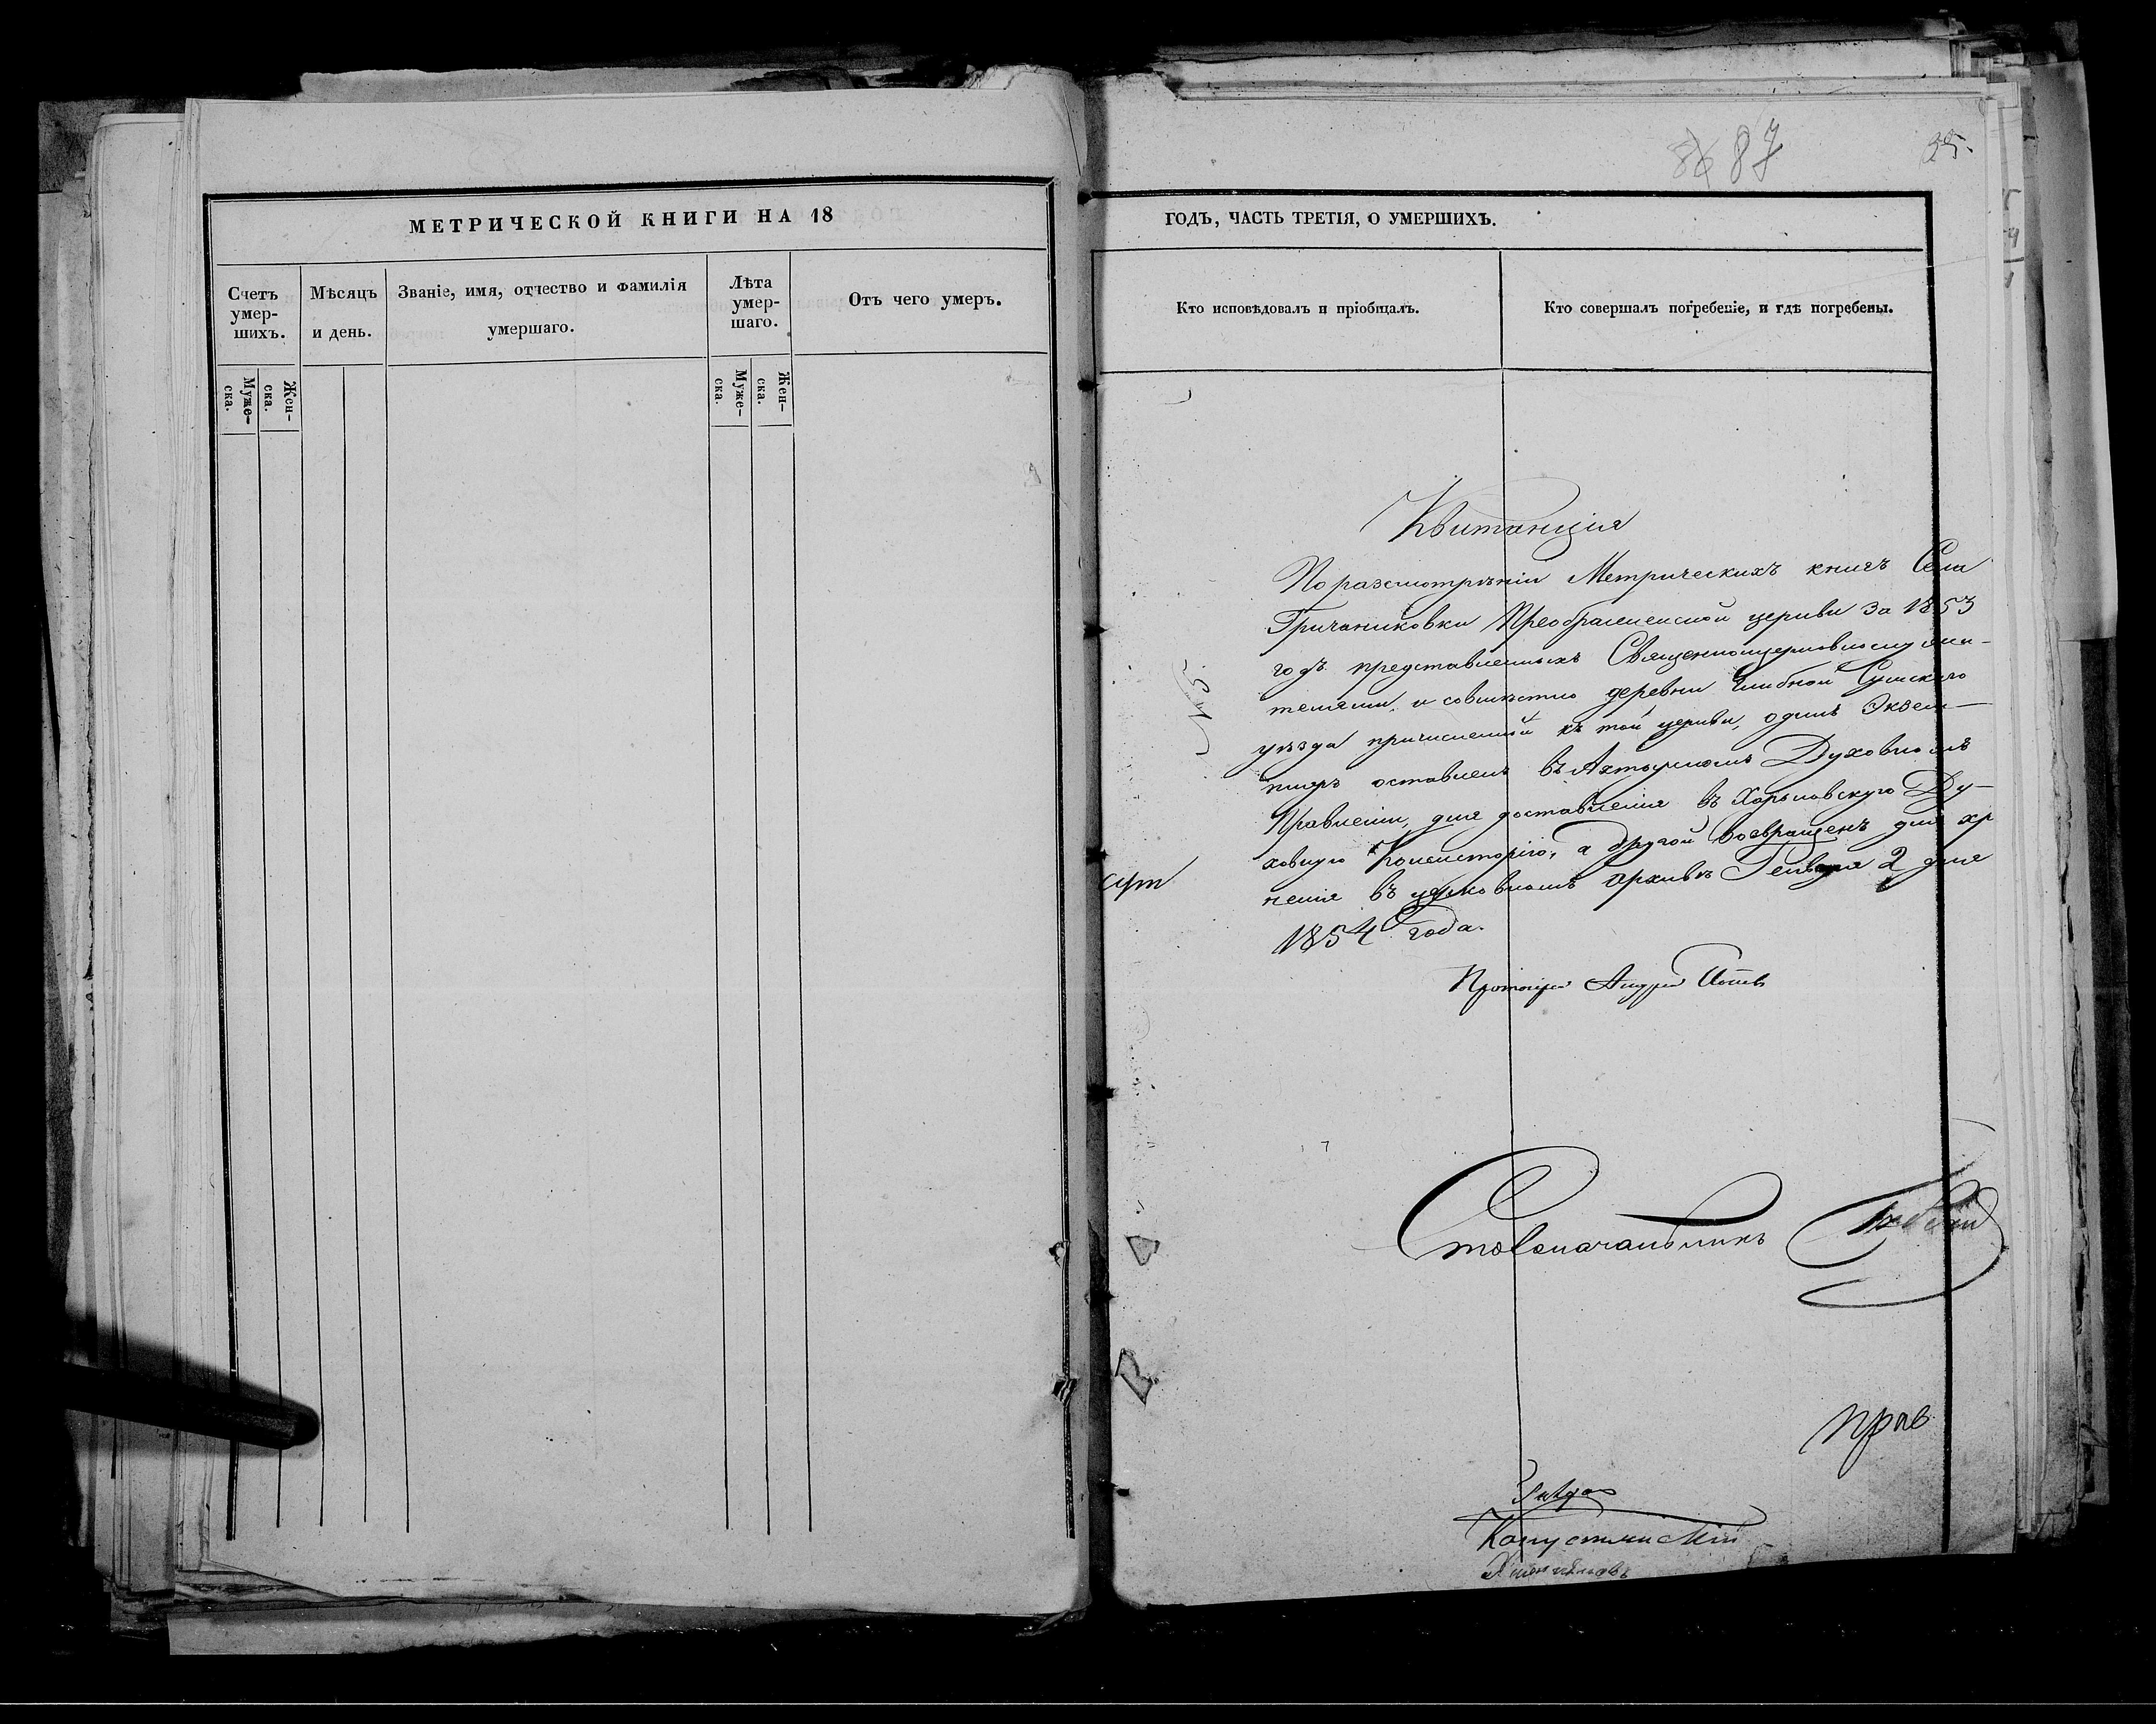 МЕТРИЧЕСКОЙ КНИГИ НА 18
Счетъ умер-шихъ.
Мѣсяцъ и день.
Званіе, имя, отчество и фамилія умершаго.
Лѣта умер-шаго.
Отъ чего умеръ.
Муже-ска.
Жен-ска.
Муже-ска.
Жен-ска.
86 87
35.
ГОДЪ, ЧАСТЬ ТРЕТІЯ, О УМЕРШИХЪ.
Кто исповѣдовалъ и пріобщалъ.
Кто совершалъ погребеніе, и гдѣ погребены.
Квитанція
По разсмотрѣніи Метрическихъ книгъ Села
Гричаниковки Преображенской церкви за 1853
годъ представленныхъ Священноцерковнослужи-
телями, и совмѣстно деревни Сумскаго
уѣзда причисленной къ той церкви, одинъ Экзем-
пляръ оставленъ въ Ахтырскомъ Духовномъ
Правленіи, для доставленія въ Харьковскую Ду-
ховную Консисторію, а другой возвращенъ для хр
ненія въ церковномъ архивѣ Генваря 2 дня
1854 года.
Протоіерей Андрей
Столоначальникъ
прав